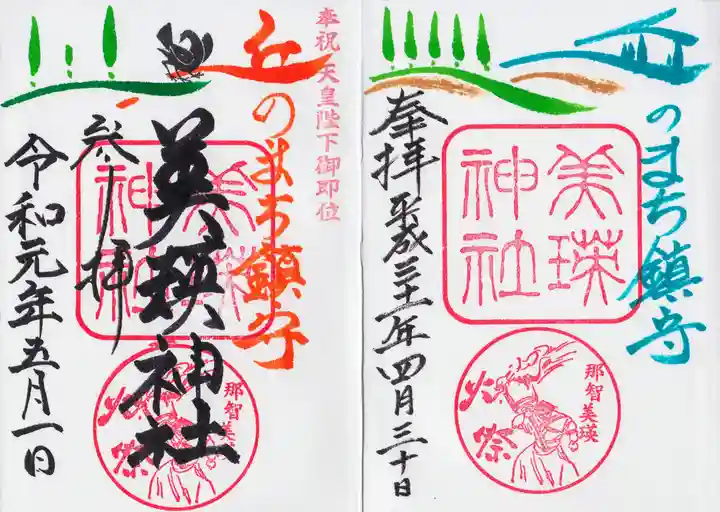 丘のまち鎮守
美瑛
神社
奉拝 平成三十一年四月三十日
那智美瑛
火祭
奉祝 天皇陛下御即位
丘のまち鎮守
美瑛神社
美瑛
神社
参拝
令和元年五月一日
那智美瑛
火祭